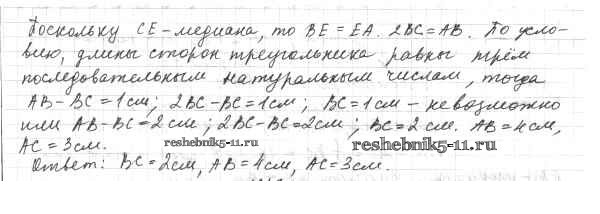 Поскольку CE-медиана, то BE=EA. 2BC=AB. По усло-
вию, длины сторон треугольника равны трём
последовательным натуральным числам, тогда
AB-BC=1см; 2BC-BC=1см; BC=1см - невозможно
или AB-BC=2см; 2BC-BC=2см; BC=2см. AB=4см,
AC=3см.
reshebnik5-11.ru
reshebnik5-11.ru
Ответ: BC=2см, AB=4см, AC=3см.